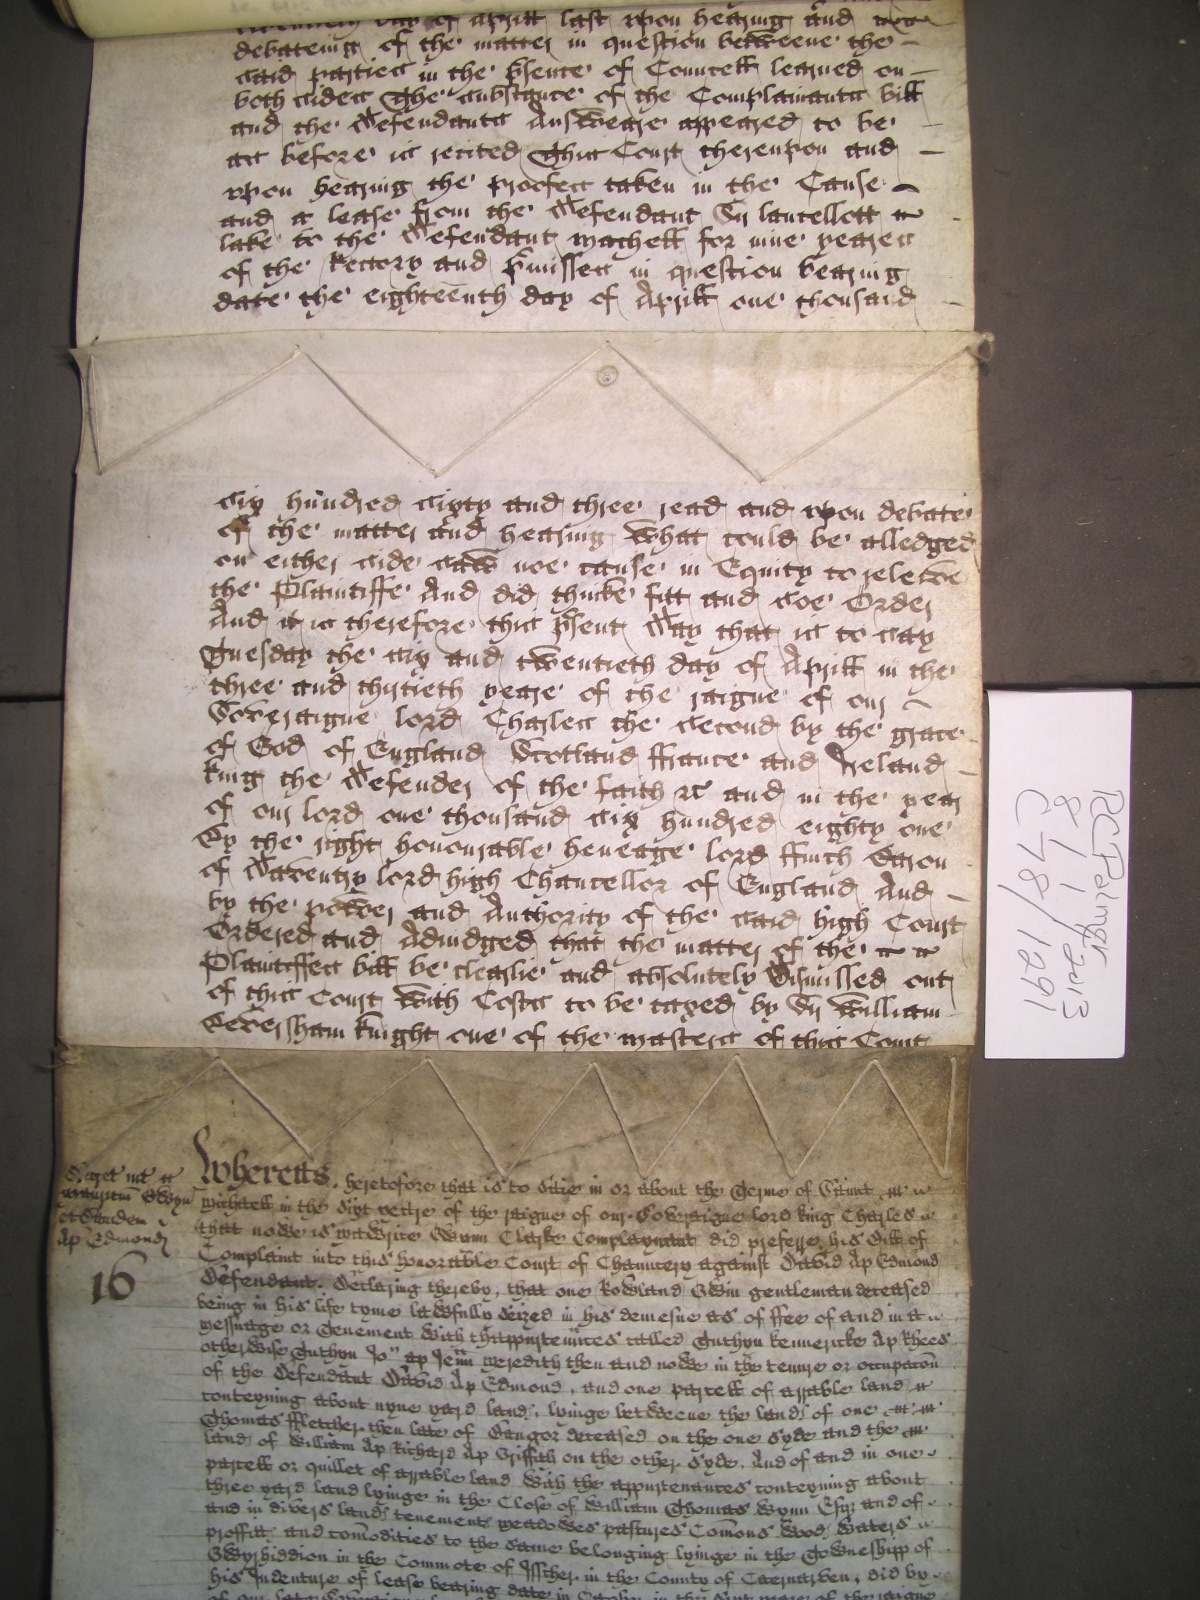 day of Aprill last upon hearing and
debateing of the matter in question betweene the
said parties in the p̄sence of Councell learned on
both sides The substance of the Complainants bill
and the Defendants Answeare appeared to be
as before is recited This Court thereupon and
upon hearing the proofes taken in the Cause
and a lease from the Defendant Sr lancellott
lake to the Defendant Machell for nine yeares
of the Rectory and p̄misses in question bearing
date the eighteenth day of Aprill one thousand
six hundred sixty and three read and upon debate
of the matter and hearing what could be alledged
on either side saw noe cause in Equity to releeve
the Plaintiffe And did thinke fitt and soe Order
And it is therefore this p̄sent Day that is to say
Tuesday the six and twentieth day of Aprill in the
three and thirtieth yeare of the raigne of our
Soveraigne lord Charles the second by the grace
of God of England Scotland ffrance and Ireland
King the Defender of the faith &c and in the year
of our lord one thousand six hundred eighty one
By the right honourable heneage lord ffinch Baron
of Daventry lord high Chancellor of England And
by the power and Authority of the said high Court
Ordered and Adiudged that the matter of the
Plaintiffes bill be clearlie and absolutely dismissed out
of this Court with Costs to be taxed by Sr William
Beversham knight one of the masters of this Court
Whereas heretofore that is to saie in or about the Terme of Saint
Michaell in the Sixt yeare of the raigne of our Soveraigne lord king Charles
that nowe is Mawrice Gwynn Clarke Complaynant did preferre his Bill of
Complaint into this honorable Court of Chauncery against David Ap Edmond
Defendant. Declaring thereby, that one Rowland Gwin gentleman deceased
being in his life tyme lawfully seized in his demesne as of ffee of and in a
messuage or Tenement with thappurtennces called Tuthyn kennericke Ap Rhees
otherwise Tuthyn Jon ap Jenn meredith then and nowe in the tenure or occupacōn
of the Defendant David Ap Edmond, and one parcell of arrable land
conteyning about nyne yard land, lyinge betweene the lands of one
Thomas ffletcher then late of Bangor deceased on the one syde and the
lands of William Ap Richard Ap Griffith on the other syde. And of and in one
parcell or quillet of arrable land with the appurtenances conteyning about
three yard land lyinge in the Close of William Thomas Wynn Esqr and of
and in divers lands tenements meadowes pastures Comons woods waters
proffitts and comodities to the same belonging lyinge in the Towneshipp of
in the Commote of in the County of Caernarven, did by
his Indenture of lease bearing date in
inter
Gwyn
et
Ap Edmond
16
RC Palmer
8/1/2013
C78/1291